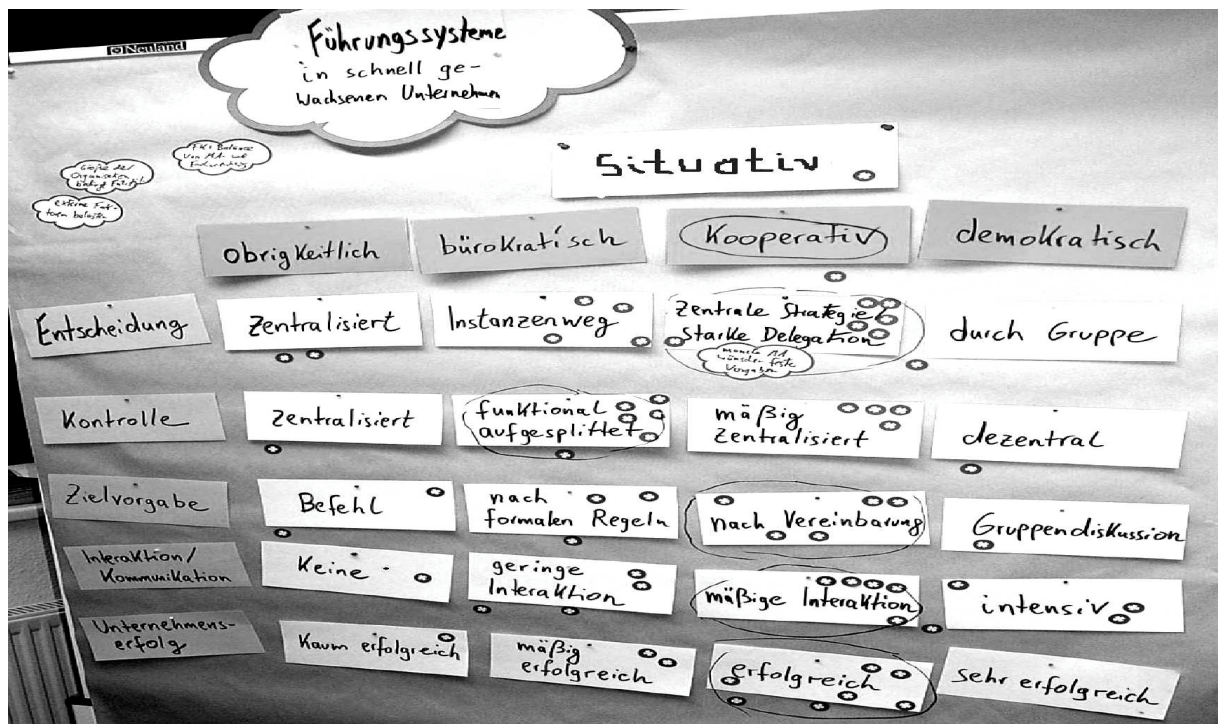 Neuland
Führungssysteme
in schnell ge-
wachsenen Unternehmen
Größe der
Organisation
externe Fak-
Balance
von MA und
Situativ
obrigkeitlich
bürokratisch
Kooperativ
demokratisch
Entscheidung
Zentralisiert
Instanzenweg
Zentrale Strategie
Starke Delegation
manche MA
wünschen feste
Vorgaben
durch Gruppe
Kontrolle
Zentralisiert
funktional
aufgesplittet
mäßig
Zentralisiert
dezentral
Zielvorgabe
Befehl
nach
formalen Regeln
nach Vereinbarung
Gruppendiskussion
Interaktion/
Kommunikation
Keine
geringe
Interaktion
mäßige Interaktion
intensiv
Unternehmens-
erfolg
Kaum erfolgreich
mäßig
erfolgreich
erfolgreich
sehr erfolgreich